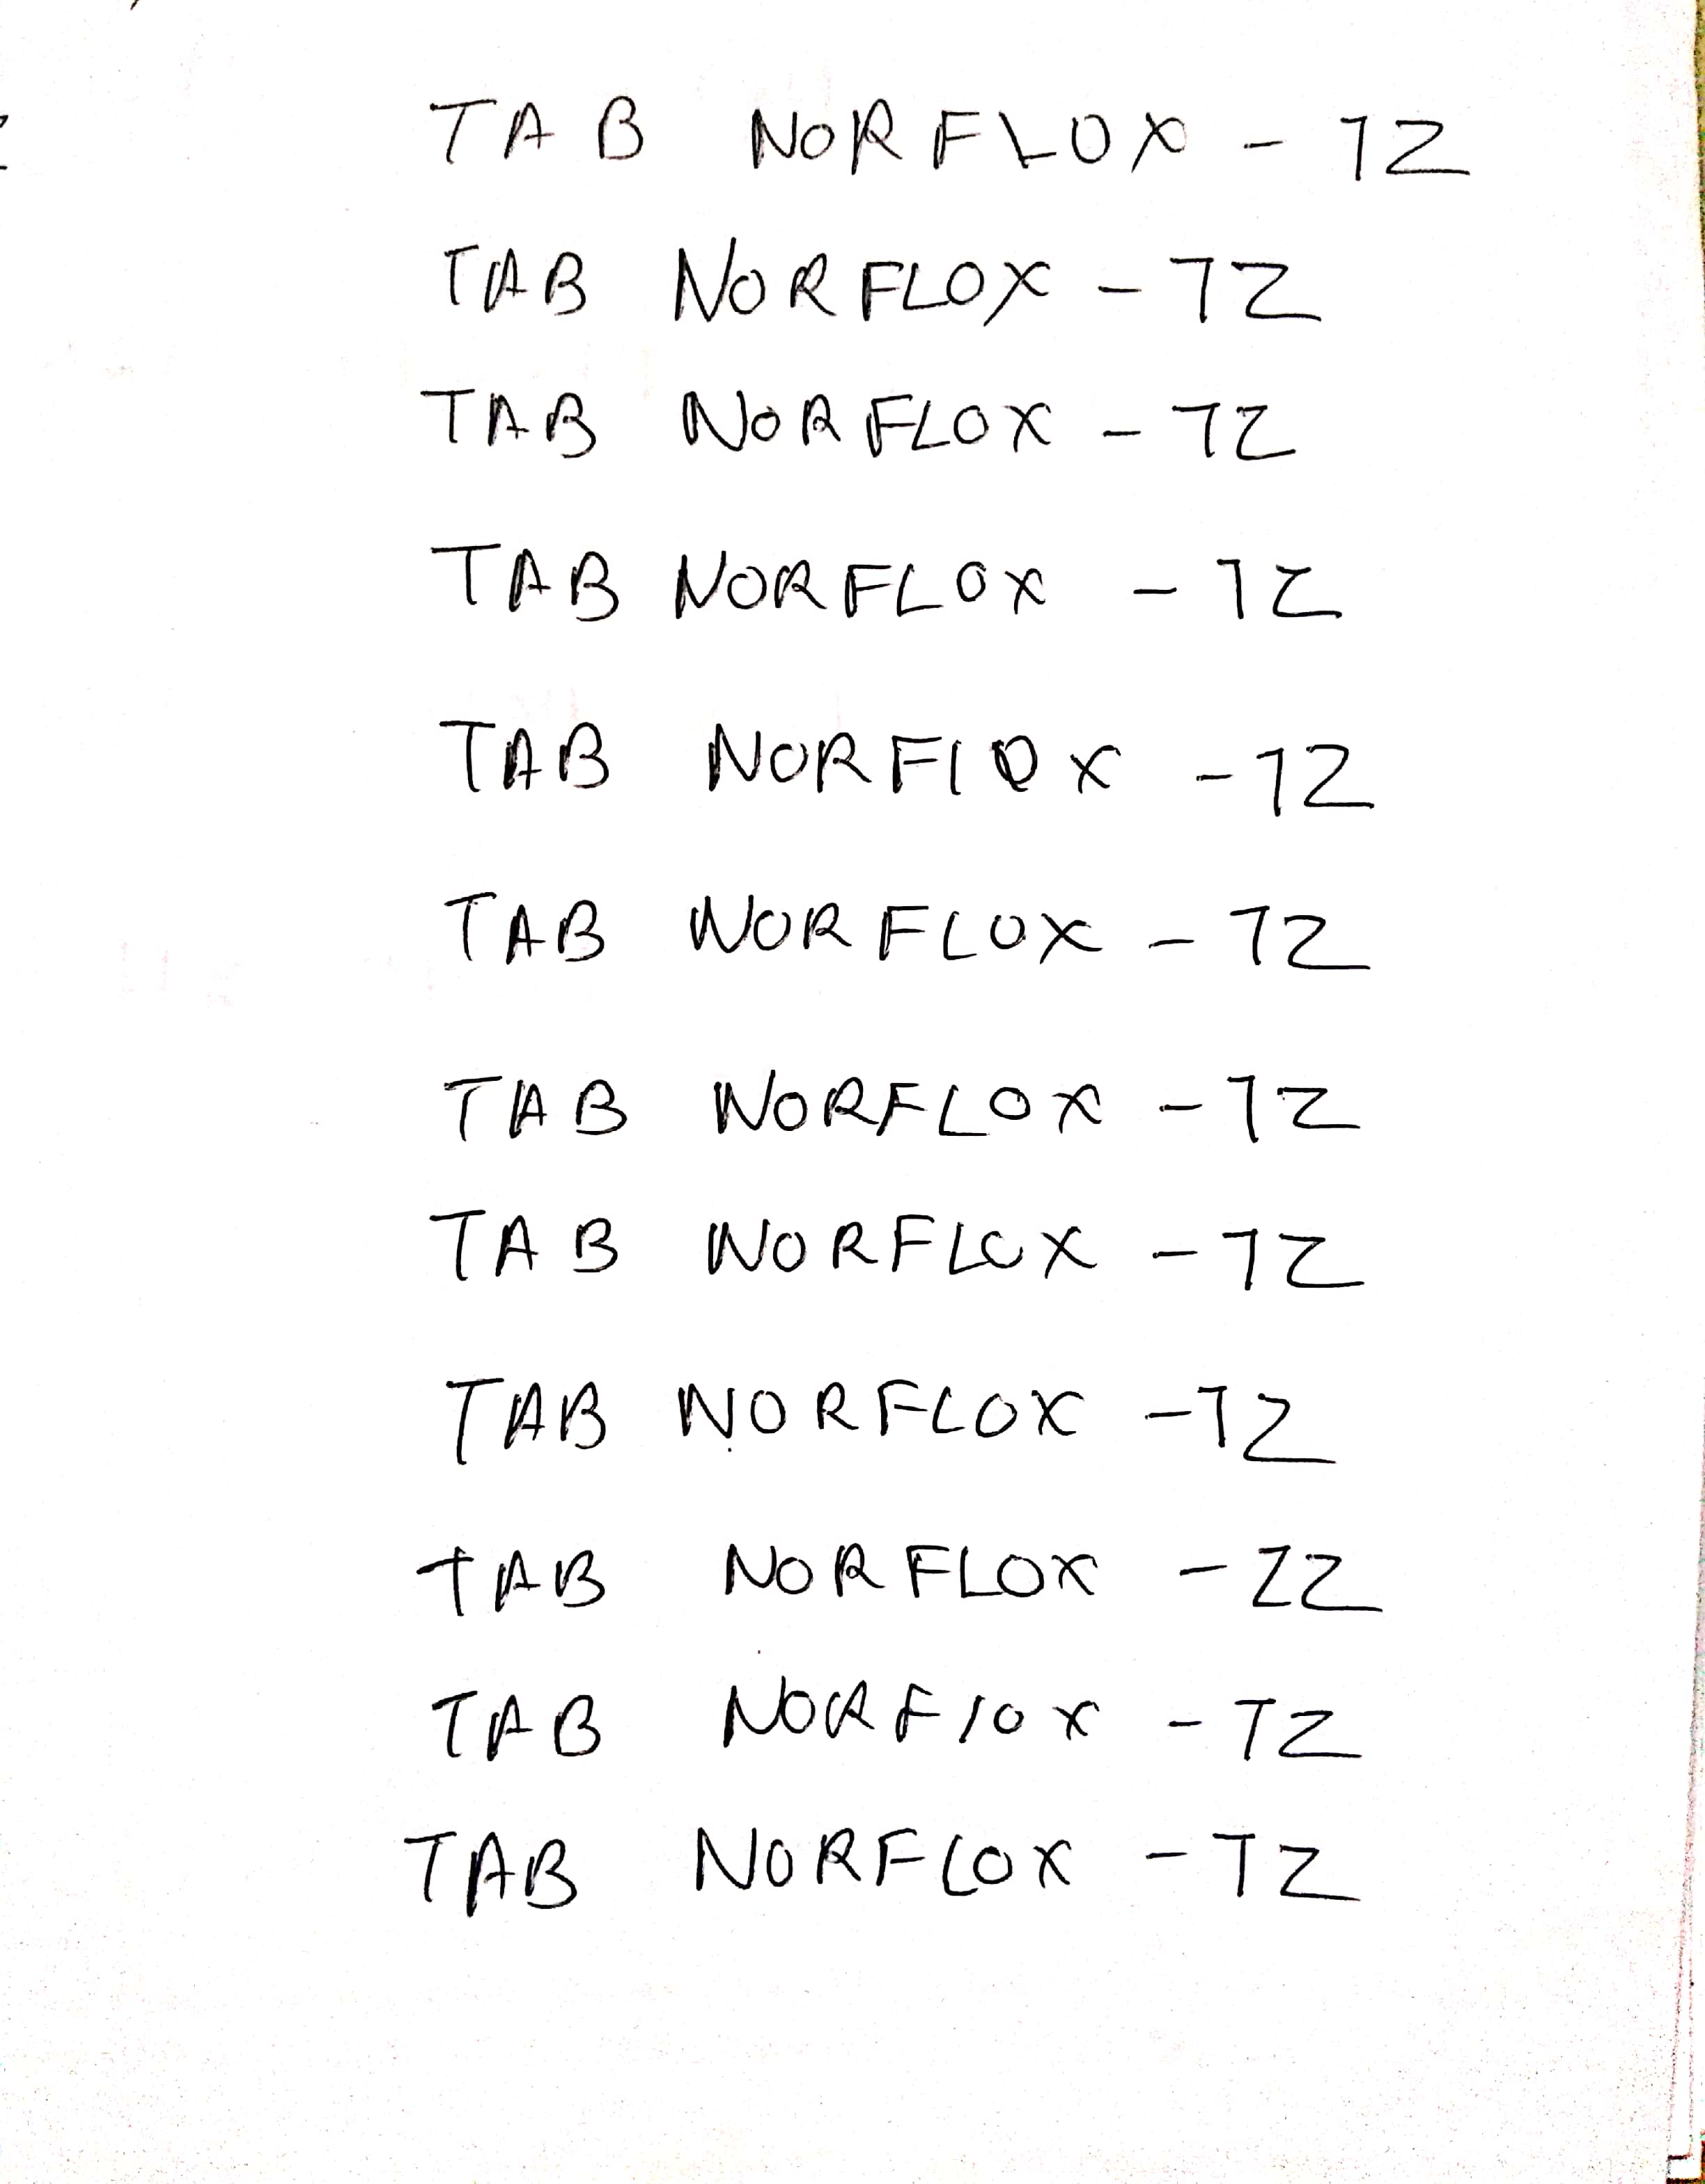 TAB NORFLOX - TZ
TAB NORFLOX - TZ
TAB NORFLOX - TZ
TAB NORFLOX - TZ
TAB NORFlOX - TZ
TAB NORFLOX - TZ
TAB NORFLOX - TZ
TAB NORFLOX - TZ
TAB NORFLOX - TZ
TAB NORFLOX - ZZ
TAB NORFlOX - TZ
TAB NORFLOX - TZ